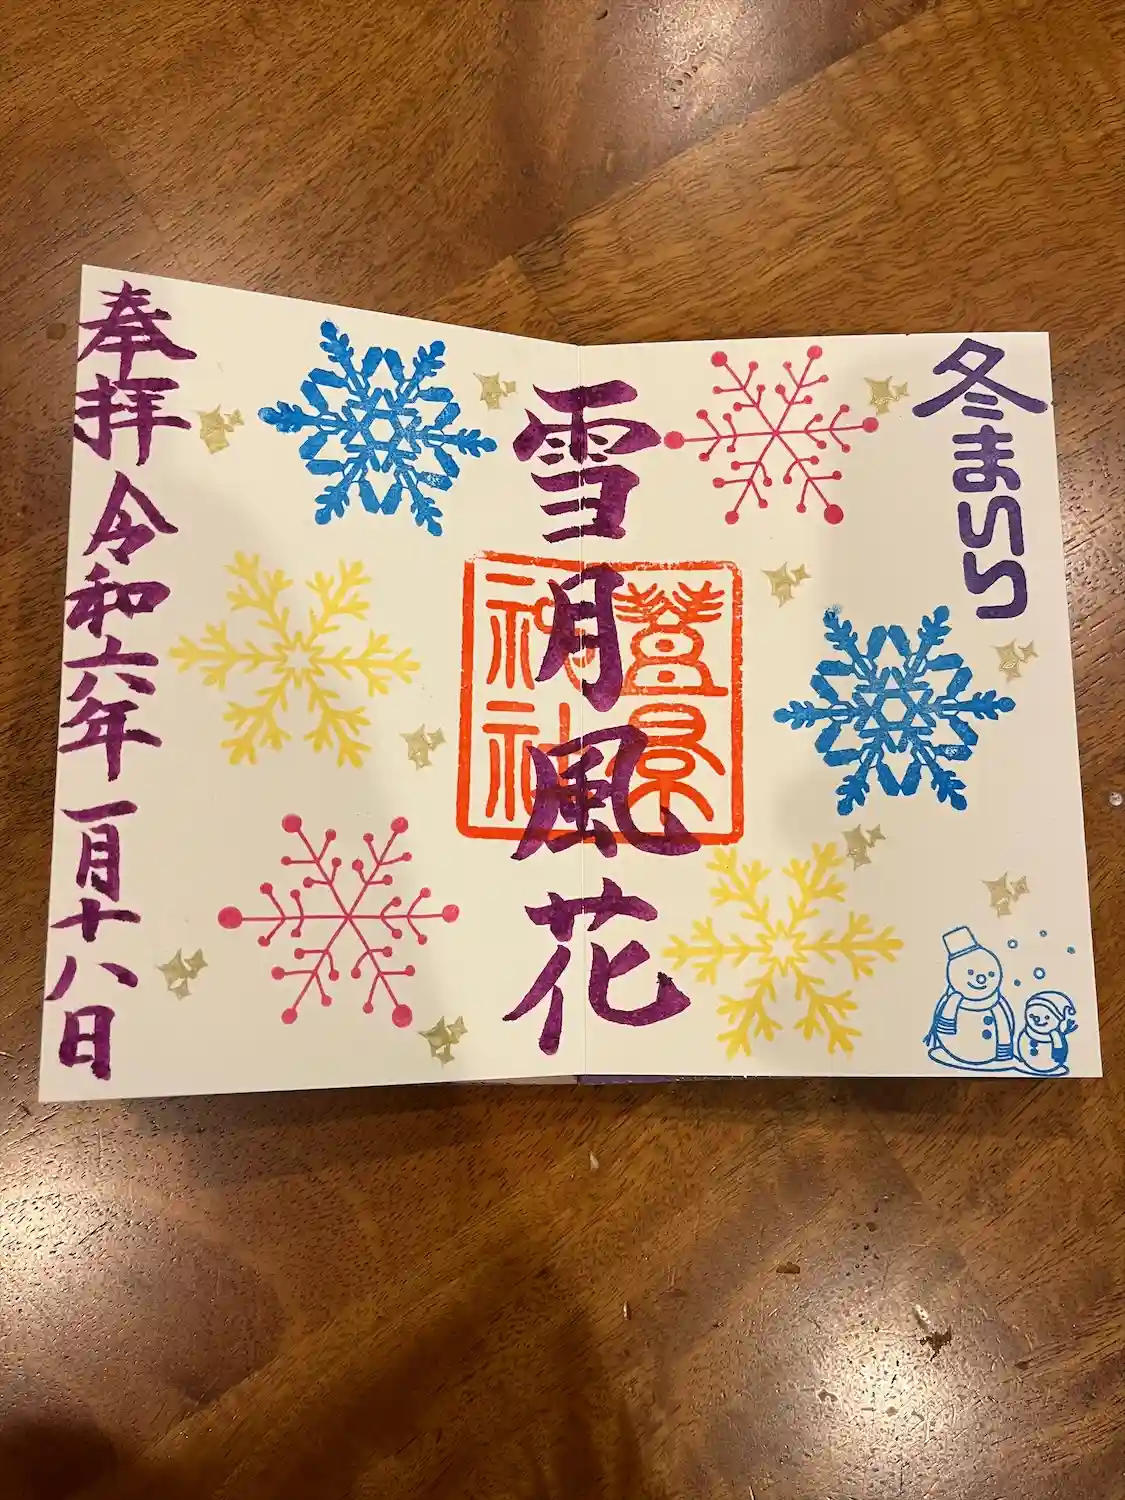 冬まいり
雪月風花
神社
奉拝 令和六年 一月十八日